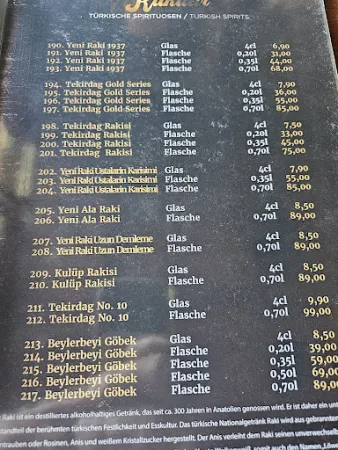 TÜRKISCHE SPIRITUOSEN / TURKISH SPIRITS
190. Yeni Raki 1937 Glas 4cl 6,90
191. Yeni Raki 1937 Flasche 0,20l 31,00
192. Yeni Raki 1937 Flasche 0,35l 44,00
193. Yeni Raki 1937 Flasche 0,70l 68,00
194. Tekirdag Gold Series Glas 4cl 7,90
195. Tekirdag Gold Series Flasche 0,20l 36,00
196. Tekirdag Gold Series Flasche 0,35l 55,00
197. Tekirdag Gold Series Flasche 0,70l 85,00
198. Tekirdag Rakisi Glas 4cl 7,50
199. Tekirdag Rakisi Flasche 0,20l 33,00
200. Tekirdag Rakisi Flasche 0,35l 45,00
201. Tekirdag Rakisi Flasche 0,70l 75,00
202. Yeni Raki Ustalarin Karisimi Glas 4cl 7,90
203. Yeni Raki Ustalarin Karisimi Flasche 0,35l 55,00
204. Yeni Raki Ustalarin Karisimi Flasche 0,70l 85,00
205. Yeni Ala Raki Glas 4cl 8,50
206. Yeni Ala Raki Flasche 0,70l 89,00
207. Yeni Raki Uzun Demleme Glas 4cl 8,50
208. Yeni Raki Uzun Demleme Flasche 0,70l 89,00
209. Kulüp Rakisi Glas 4cl 8,50
210. Kulüp Rakisi Flasche 0,70l 89,00
211. Tekirdag No. 10 Glas 4cl 9,90
212. Tekirdag No. 10 Flasche 0,70l 99,00
213. Beylerbeyi Göbek Glas 4cl 8,50
214. Beylerbeyi Göbek Flasche 0,20l 39,00
215. Beylerbeyi Göbek Flasche 0,35l 59,00
216. Beylerbeyi Göbek Flasche 0,50l 69,00
217. Beylerbeyi Göbek Flasche 0,70l 89,00
Raki ist ein destilliertes alkoholhaltiges Getränk, das seit ca. 300 Jahren in Anatolien genossen wird. Er ist daher ein
standteil der berühmten türkischen Festlichkeit und Esskultur. Das türkische Nationalgetränk Raki wird aus gebrannten
ntrauben oder Rosinen, Anis und weißem Kristallzucker hergestellt. Der Anis verleiht dem Raki seinen